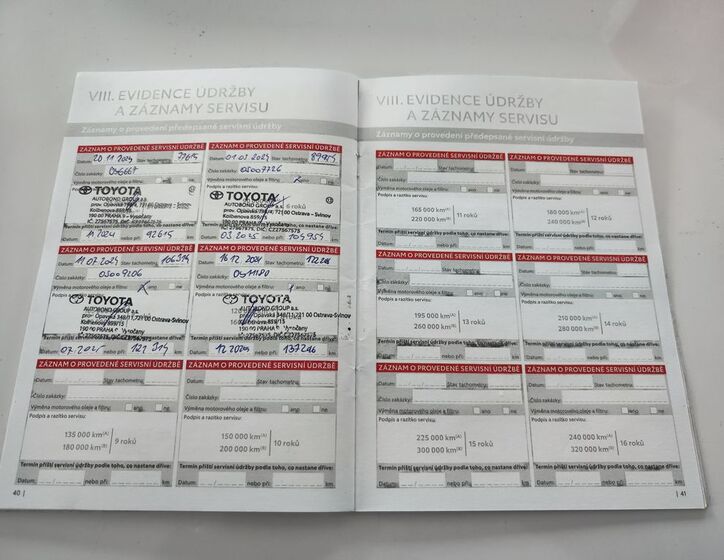 VIII. EVIDENCE ÚDRŽBY
A ZÁZNAMY SERVISU
Záznamy o provedení předepsané servisní údržby
ZÁZNAM O PROVEDENÉ SERVISNÍ ÚDRŽBĚ
Datum: 20 11 2023 Stav tachometru: 77615
Číslo zakázky:
Výměna motorového oleje a filtru:
TOYOTA
AUTOBOND GROUP a.s.
Kolbenova 859/13
190 00 PRAHA 9
Termín příští servisní údržby podle toho, co nastane dříve:
11 2024 nebo při: 92615 km
ZÁZNAM O PROVEDENÉ SERVISNÍ ÚDRŽBĚ
Datum: 01.03 2024 Stav tachometru: 89955
Číslo zakázky: 05007726
Výměna motorového oleje a filtru:
Podpis a razítko servisu:
TOYOTA 6 roků
AUTOBOND GROUP a.s.
721 00 Ostrava - Svinov
Kolbenova 859/13
Termín příští servisní údržby podle toho, co nastane dříve:
03 2025 nebo při: 104955 km
ZÁZNAM O PROVEDENÉ SERVISNÍ ÚDRŽBĚ
Datum: 11.07 2024 Stav tachometru: 106314
Číslo zakázky: 05009206
Výměna motorového oleje a filtru:
Podpis a razítko servisu:
TOYOTA
AUTOBOND GROUP a.s.
prov. Opavská 348/11, 721 00 Ostrava-Svinov
Termín příští servisní údržby podle toho, co nastane dříve:
nebo při: 121 314 km
ZÁZNAM O PROVEDENÉ SERVISNÍ ÚDRŽBĚ
Datum: 16.12.2024 Stav tachometru:
Číslo zakázky:
Výměna motorového oleje a filtru:
Podpis a razítko servisu:
TOYOTA
AUTOBOND GROUP a.s.
Termín příští servisní údržby podle toho, co nastane dříve:
nebo při: km
ZÁZNAM O PROVEDENÉ SERVISNÍ ÚDRŽBĚ
Datum: Stav tachometru:
Číslo zakázky:
Výměna motorového oleje a filtru: ano ne
Podpis a razítko servisu:
135 000 km(A)
180 000 km(B)
9 roků
Termín příští servisní údržby podle toho, co nastane dříve:
Datum: nebo při: km
ZÁZNAM O PROVEDENÉ SERVISNÍ ÚDRŽBĚ
Datum: Stav tachometru:
Číslo zakázky:
Výměna motorového oleje a filtru: ano ne
Podpis a razítko servisu:
150 000 km(A)
200 000 km(B)
10 roků
Termín příští servisní údržby podle toho, co nastane dříve:
Datum: nebo při: km
40 |
VIII. EVIDENCE ÚDRŽBY
A ZÁZNAMY SERVISU
Záznamy o provedení předepsané servisní údržby
ZÁZNAM O PROVEDENÉ SERVISNÍ ÚDRŽBĚ
Datum: Stav tachometru:
Číslo zakázky:
Výměna motorového oleje a filtru: ano ne
Podpis a razítko servisu:
165 000 km(A)
220 000 km(B)
11 roků
Termín příští servisní údržby podle toho, co nastane dříve:
Datum: nebo při: km
ZÁZNAM O PROVEDENÉ SERVISNÍ ÚDRŽBĚ
Datum: Stav tachometru:
Číslo zakázky:
Výměna motorového oleje a filtru: ano ne
Podpis a razítko servisu:
180 000 km(A)
240 000 km(B)
12 roků
Termín příští servisní údržby podle toho, co nastane dříve:
Datum: nebo při: km
ZÁZNAM O PROVEDENÉ SERVISNÍ ÚDRŽBĚ
Datum: Stav tachometru:
Číslo zakázky:
Výměna motorového oleje a filtru: ano ne
Podpis a razítko servisu:
195 000 km(A)
260 000 km(B)
13 roků
Termín příští servisní údržby podle toho, co nastane dříve:
Datum: nebo při: km
ZÁZNAM O PROVEDENÉ SERVISNÍ ÚDRŽBĚ
Datum: Stav tachometru:
Číslo zakázky:
Výměna motorového oleje a filtru: ano ne
Podpis a razítko servisu:
210 000 km(A)
280 000 km(B)
14 roků
Termín příští servisní údržby podle toho, co nastane dříve:
Datum: nebo při: km
ZÁZNAM O PROVEDENÉ SERVISNÍ ÚDRŽBĚ
Datum: Stav tachometru:
Číslo zakázky:
Výměna motorového oleje a filtru: ano ne
Podpis a razítko servisu:
225 000 km(A)
300 000 km(B)
15 roků
Termín příští servisní údržby podle toho, co nastane dříve:
Datum: nebo při: km
ZÁZNAM O PROVEDENÉ SERVISNÍ ÚDRŽBĚ
Datum: Stav tachometru:
Číslo zakázky:
Výměna motorového oleje a filtru: ano ne
Podpis a razítko servisu:
240 000 km(A)
320 000 km(B)
16 roků
Termín příští servisní údržby podle toho, co nastane dříve:
Datum: nebo při: km
| 41